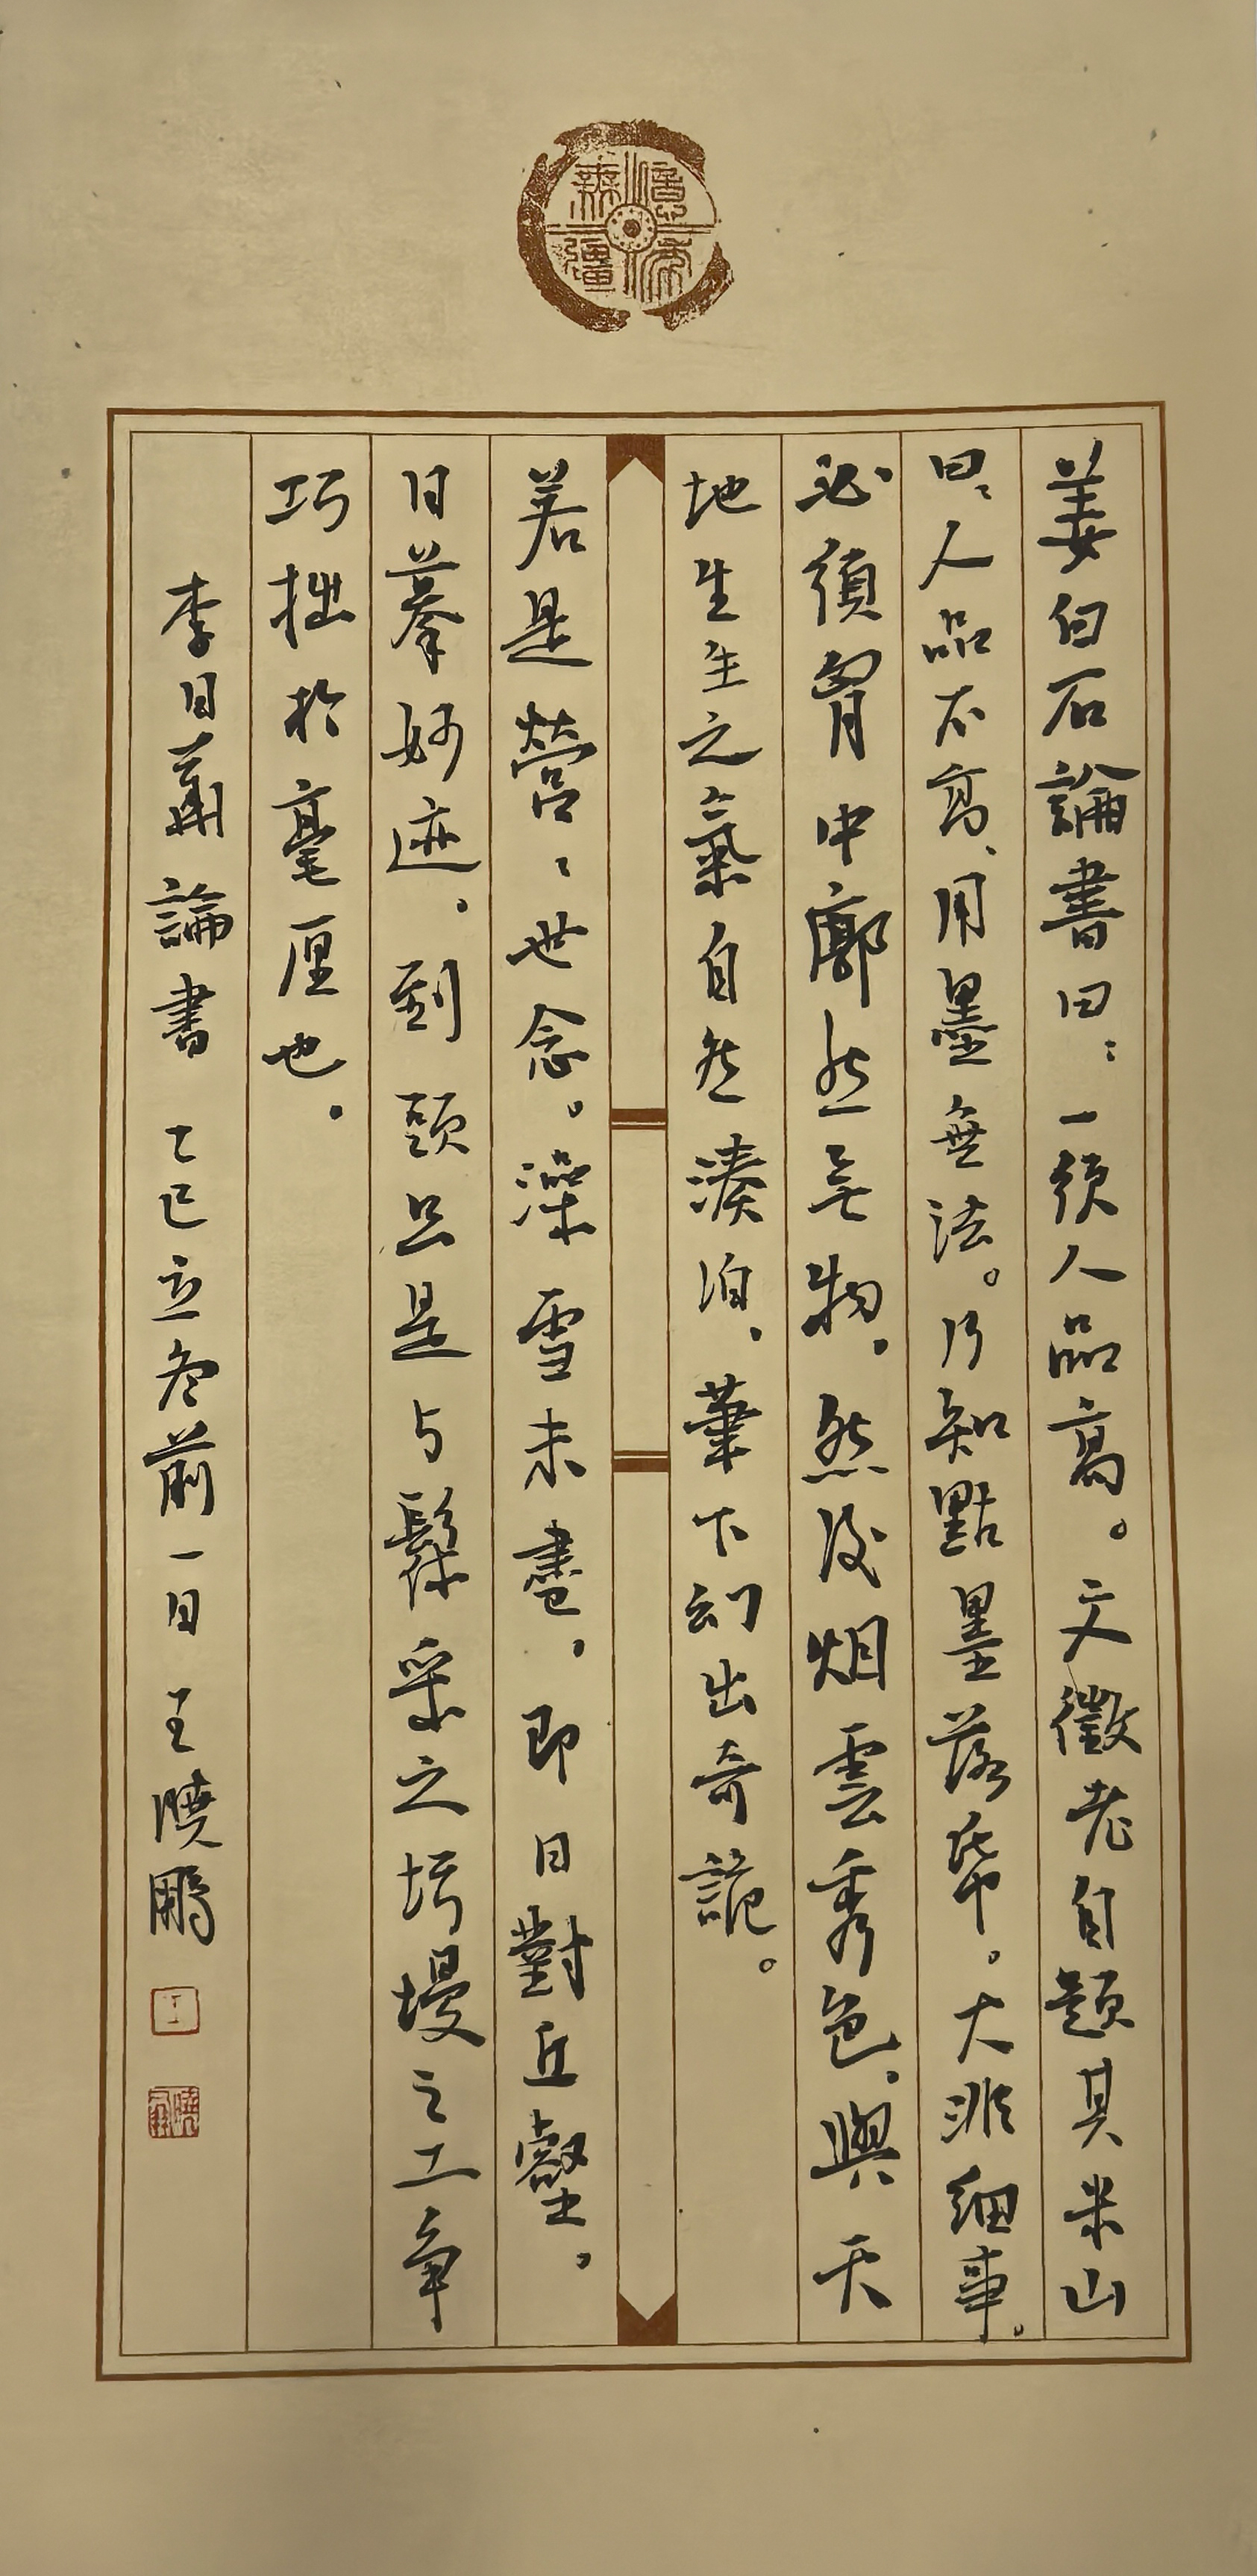 億年無疆
姜白石論書曰：一須人品高。文徵老自題其米山
曰：人品不高、用墨無法。乃知點墨落紙。大非細事。
必須胷中廓然無物，然後烟雲秀色，與天
地生生之氣自然湊泊，筆下幻出奇詭。
若是營〻世念。澡雪未盡，即日對丘壑，
日摹妙迹，到頭只是与髹采之圬墁之工争
巧拙於毫厘也．
李日華論書 乙巳立冬前一日 王曉鵬
王
曉鵬